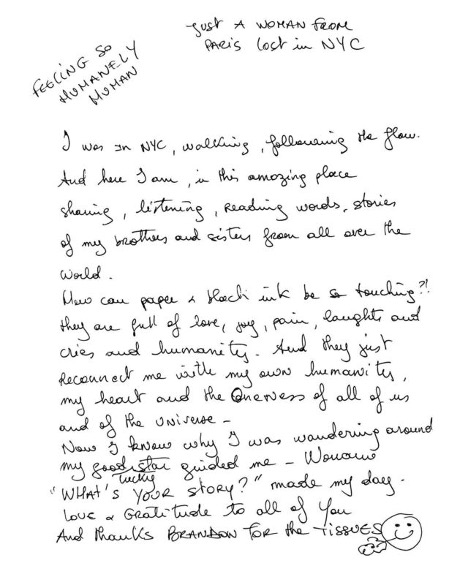 Just A WOMAN FROM
PARIS lost in NYC
FEELING SO
HUMANELY
HUMAN
I was in NYC, walking, following the flow.
And here I am, in this amazing place
sharing, listening, reading words, stories
of my brothers and sisters from all over the
world.
How can paper & black ink be so touching?!
they are full of love, joy, pain, laughts and
cries and humanity. And they just
Reconnect me with my own humanity,
my heart and the Oneness of all of us
and of the universe -
Now I know why I was wandering around
my good star guided me -
lucky
"WHAT'S YOUR STORY?" made my day.
Love & Gratitude to all of You
And thanks BRANDON FOR the TISSUES